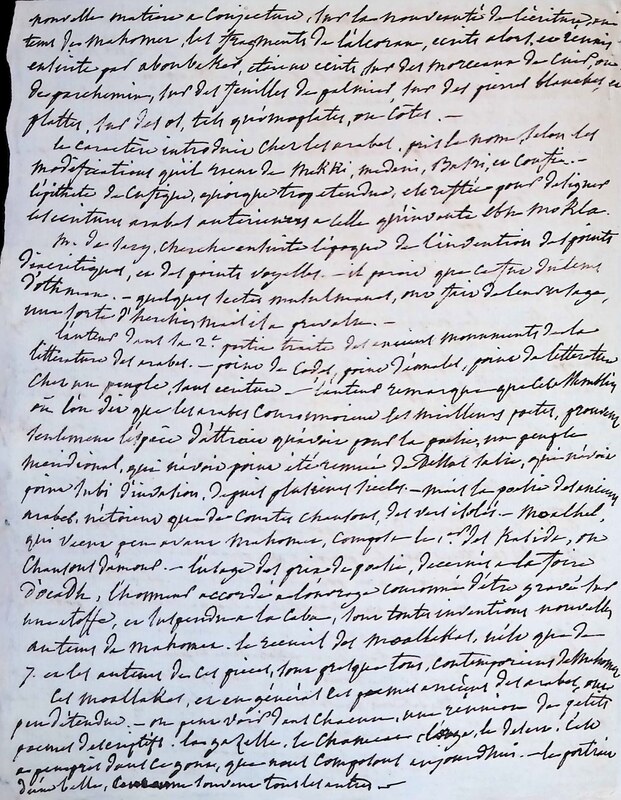 nouvelle matière à conjecture, sur la nouveauté de l'écriture, au
tems de Mahomet, les fragments de l'alcoran, écrits alors, et réunis
ensuite par aboubekar, étaient écrits sur des morceaux de cuir, ou
de parchemin, sur des feuilles de palmier, sur des pierres blanches, et
plattes, sur des os, tels qu'omoplates, ou côtes. —
le caractère introduit chez les arabes, prit le nom, selon les
modifications qu'il reçut de Mekki, medani, Basri, et Coufi. —
l'épithète de Cufique, quoique trop étendue, est restée pour désigner
les écritures arabes antérieures à celle qu'inventa ebn Mokla.
M. de Sacy, cherche ensuite l'époque de l'invention des points
diacritiques, et des points voyelles. — il paroit que ce fut du tems
d'othman. — quelques sectes musulmanes, ont fait de leur usage,
une sorte d'hérésie, mais il a prévalu. —
l'auteur dans la 2e partie traite des anciens monuments de la
littérature des arabes. — point de Codes, point d'annales, point de littérature
chez un peuple, sans écriture — l'auteur remarque que les
où l'on dit que les arabes couronnoient les meilleurs poètes, prouvent
seulement l'espèce d'attrait qu'avoit pour la poésie, un peuple
méridional, qui n'avoit point été remué de qui n'avoit
point subi d'invasion, depuis plusieurs siècles. — mais la poésie des anciens
arabes, n'étoient que de courtes chansons, des vers isolés. — Moalhel,
qui vécut peu avant Mahomet, composa le 1er des Kaside, ou
Chansons d'amour. — l'usage des prix de poésie, décernés à la foire
d'ocadh, l'honneur accordé à l'ouvrage couronné d'être gravé sur
une étoffe, et suspendu à la Caba, sont toutes inventions nouvelles
au tems de Mahomet. le recueil des Moallakas, n'est que de
7. et les auteurs de ces pièces, sont presque tous, contemporains de Mahomet
Ces Moallakas, et en général les poemes anciens des arabes, ont
peu d'étendue. — on peut voir dans chacun, une réunion de petits
poemes descriptifs. la gazelle, le Chameau l'orage, le désert. C'est
à peu près dans ce genre, que nous composons aujourdhui. — le portrait
d'une belle, souvent tous les autres. —